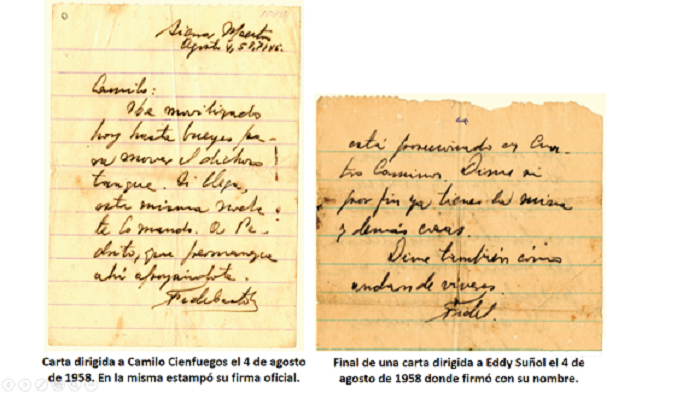 Sierra Maestra
Agosto 4, 58, 7
Camilo:
He movilizado
hoy hasta bueyes pa-
ra mover el dichoso
tanque. Si llega,
esta misma noche
te lo mando. A Pe-
drito, que permanezca
ahí apoyándote.
Fidel Castro
Carta dirigida a Camilo Cienfuegos el 4 de agosto
de 1958. En la misma estampó su firma oficial.
está presionando en Cua-
tro Caminos. Dime si
por fin ya tienes la mina
y demás cosas.
Dime también cómo
andan de víveres.
Fidel.
Final de una carta dirigida a Eddy Suñol el 4 de
agosto de 1958 donde firmó con su nombre.